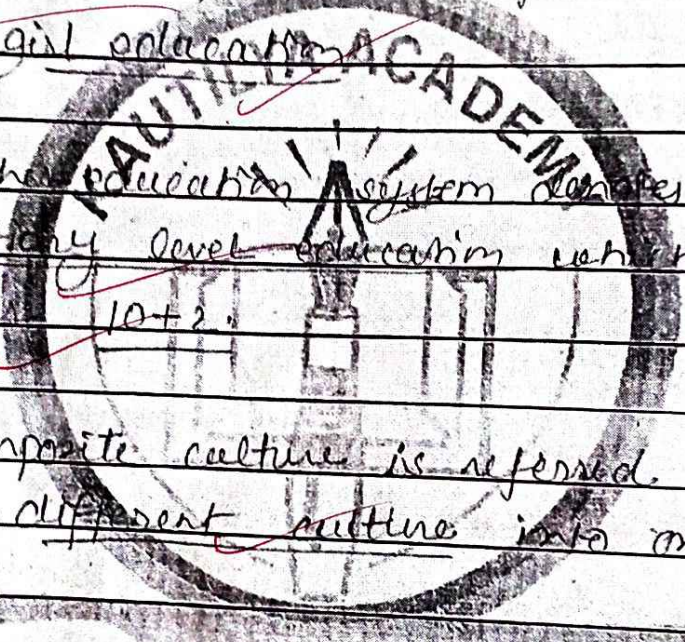 girl education
KAUTILYA ACADEMY
education system denotes
level education
10+2.
composite culture is referred
different culture into